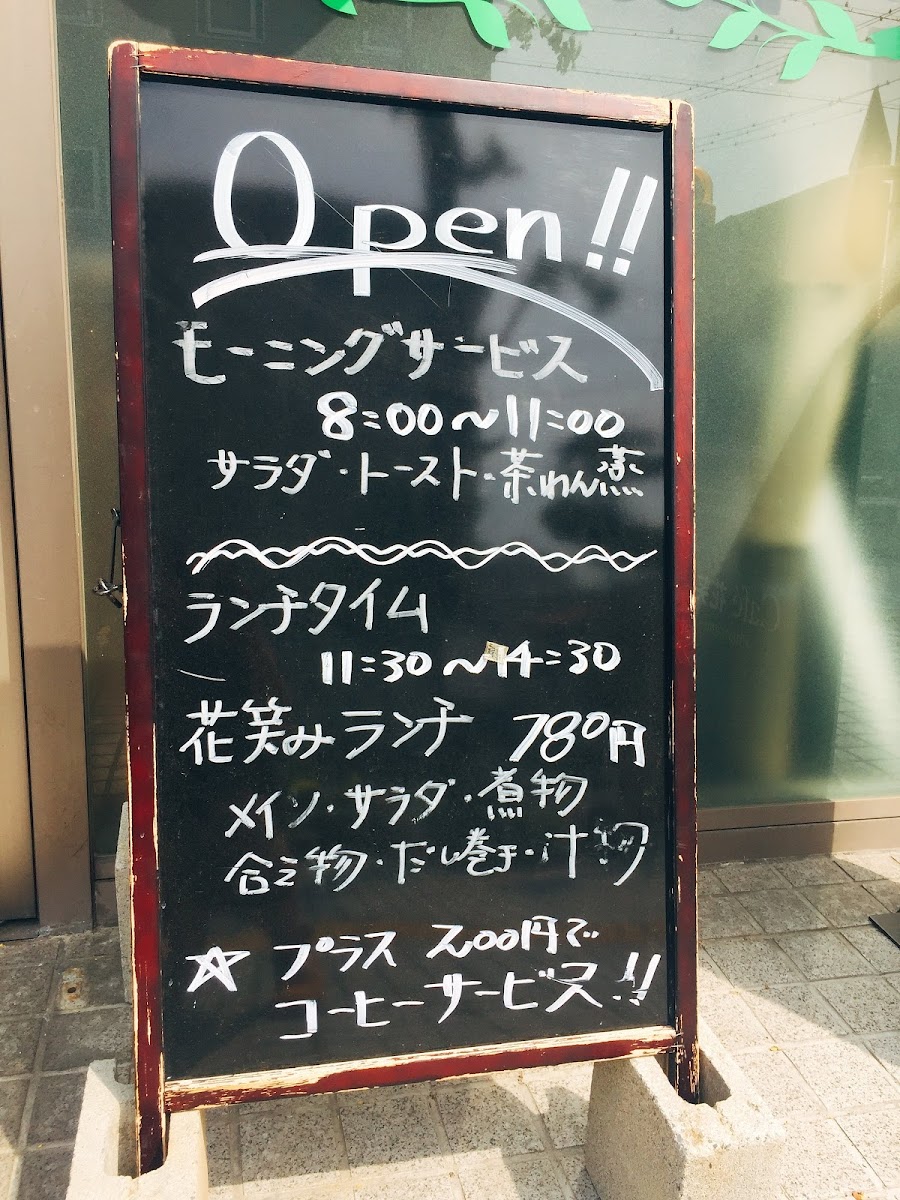 Open!!
モーニングサービス
8:00〜11:00
サラダ・トースト・茶わん蒸
ランチタイム
11:30〜14:30
花笑みランチ 780円
メイン・サラダ・煮物
合え物・だし巻き・汁物
☆ プラス 200円で
コーヒーサービス!!
Cafe